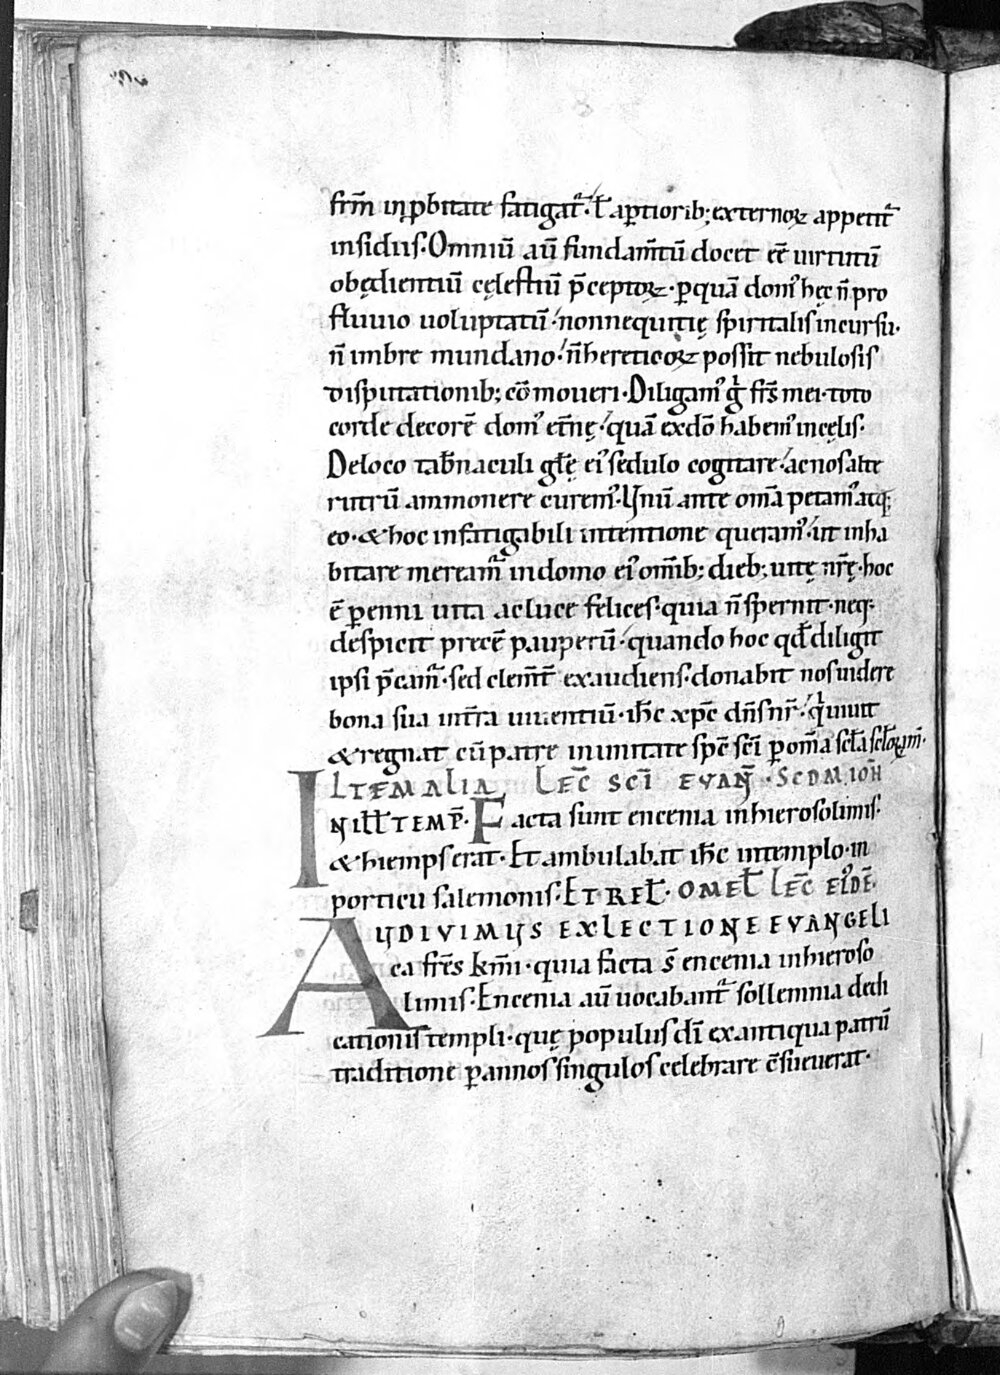 frm̄ inꝓbitate fatigat᷑· ł aꝑtiorib; externoꝝ appetit᷑
insidiis· Omniū aū fundam̄tū docet eē uirtutū
obędientiū cęlestiū p̄ceptoꝝ· ꝑquā domꝰ hęc n̄ pro
fluuio uoluptatū· nonnequitię spiritalis incursu·
n̄ imbre mundano· n̄ hereticoꝝ possit nebulosis
disputationib; cōmoueri· Diligamꝰ gͥ fr̄s mei· toto
corde decorē domꝰ et̄nę· quā exdō habemꝰ incęlis·
Deloco tab̄naculi głę eiꝰ sedulo cogitare· acnosalte
rutrū ammonere curemꝰ· Unū ante om̄a petamꝰ atq;
eo· & hoc infatigabili intentione queramꝰ· ut inha
bitare meream᷑ indomo eiꝰ om̄ib; dieb; uitę nr̄ę· hoc
ē ꝑenni uita acluce felices· quia n̄ spernit· neq;
despicit precē pauperū· quando hoc qđ diligit
ipsi p̄cam᷑· sed clem̄t᷑ exaudiens· donabit nosuidere
bona sua int̄ra uiuentiū· ihc̄ xpc̄ dn̄s nr̄· qͥ uiuit
& regnat cū patre inunitate spc̄ sc̄i ꝑ om̄a scła scłoꝝ am̄·
ILTEM ALIA LEC̄ SC̄I EVAN̄G· SCDM IOH
N ILŁ TEMP̄· Facta sunt encenia inhierosolimis·
& hiemps erat· Et ambulabat ihc̄ intemplo· in
porticu salemonis· ET REŁ· OMEŁ LEC̄ EIꝰDĒ·
AUDIVIMUS EXLECTIONE EVANGELI
ca fr̄s km̄i· quia facta s̄ encenia inhieroso
limis· Encenia aū uocabant᷑ sollemnia dedi
cationis templi· quę populus dī exantiqua patrū
traditione ꝑ annos singulos celebrare c̄sueuerat·